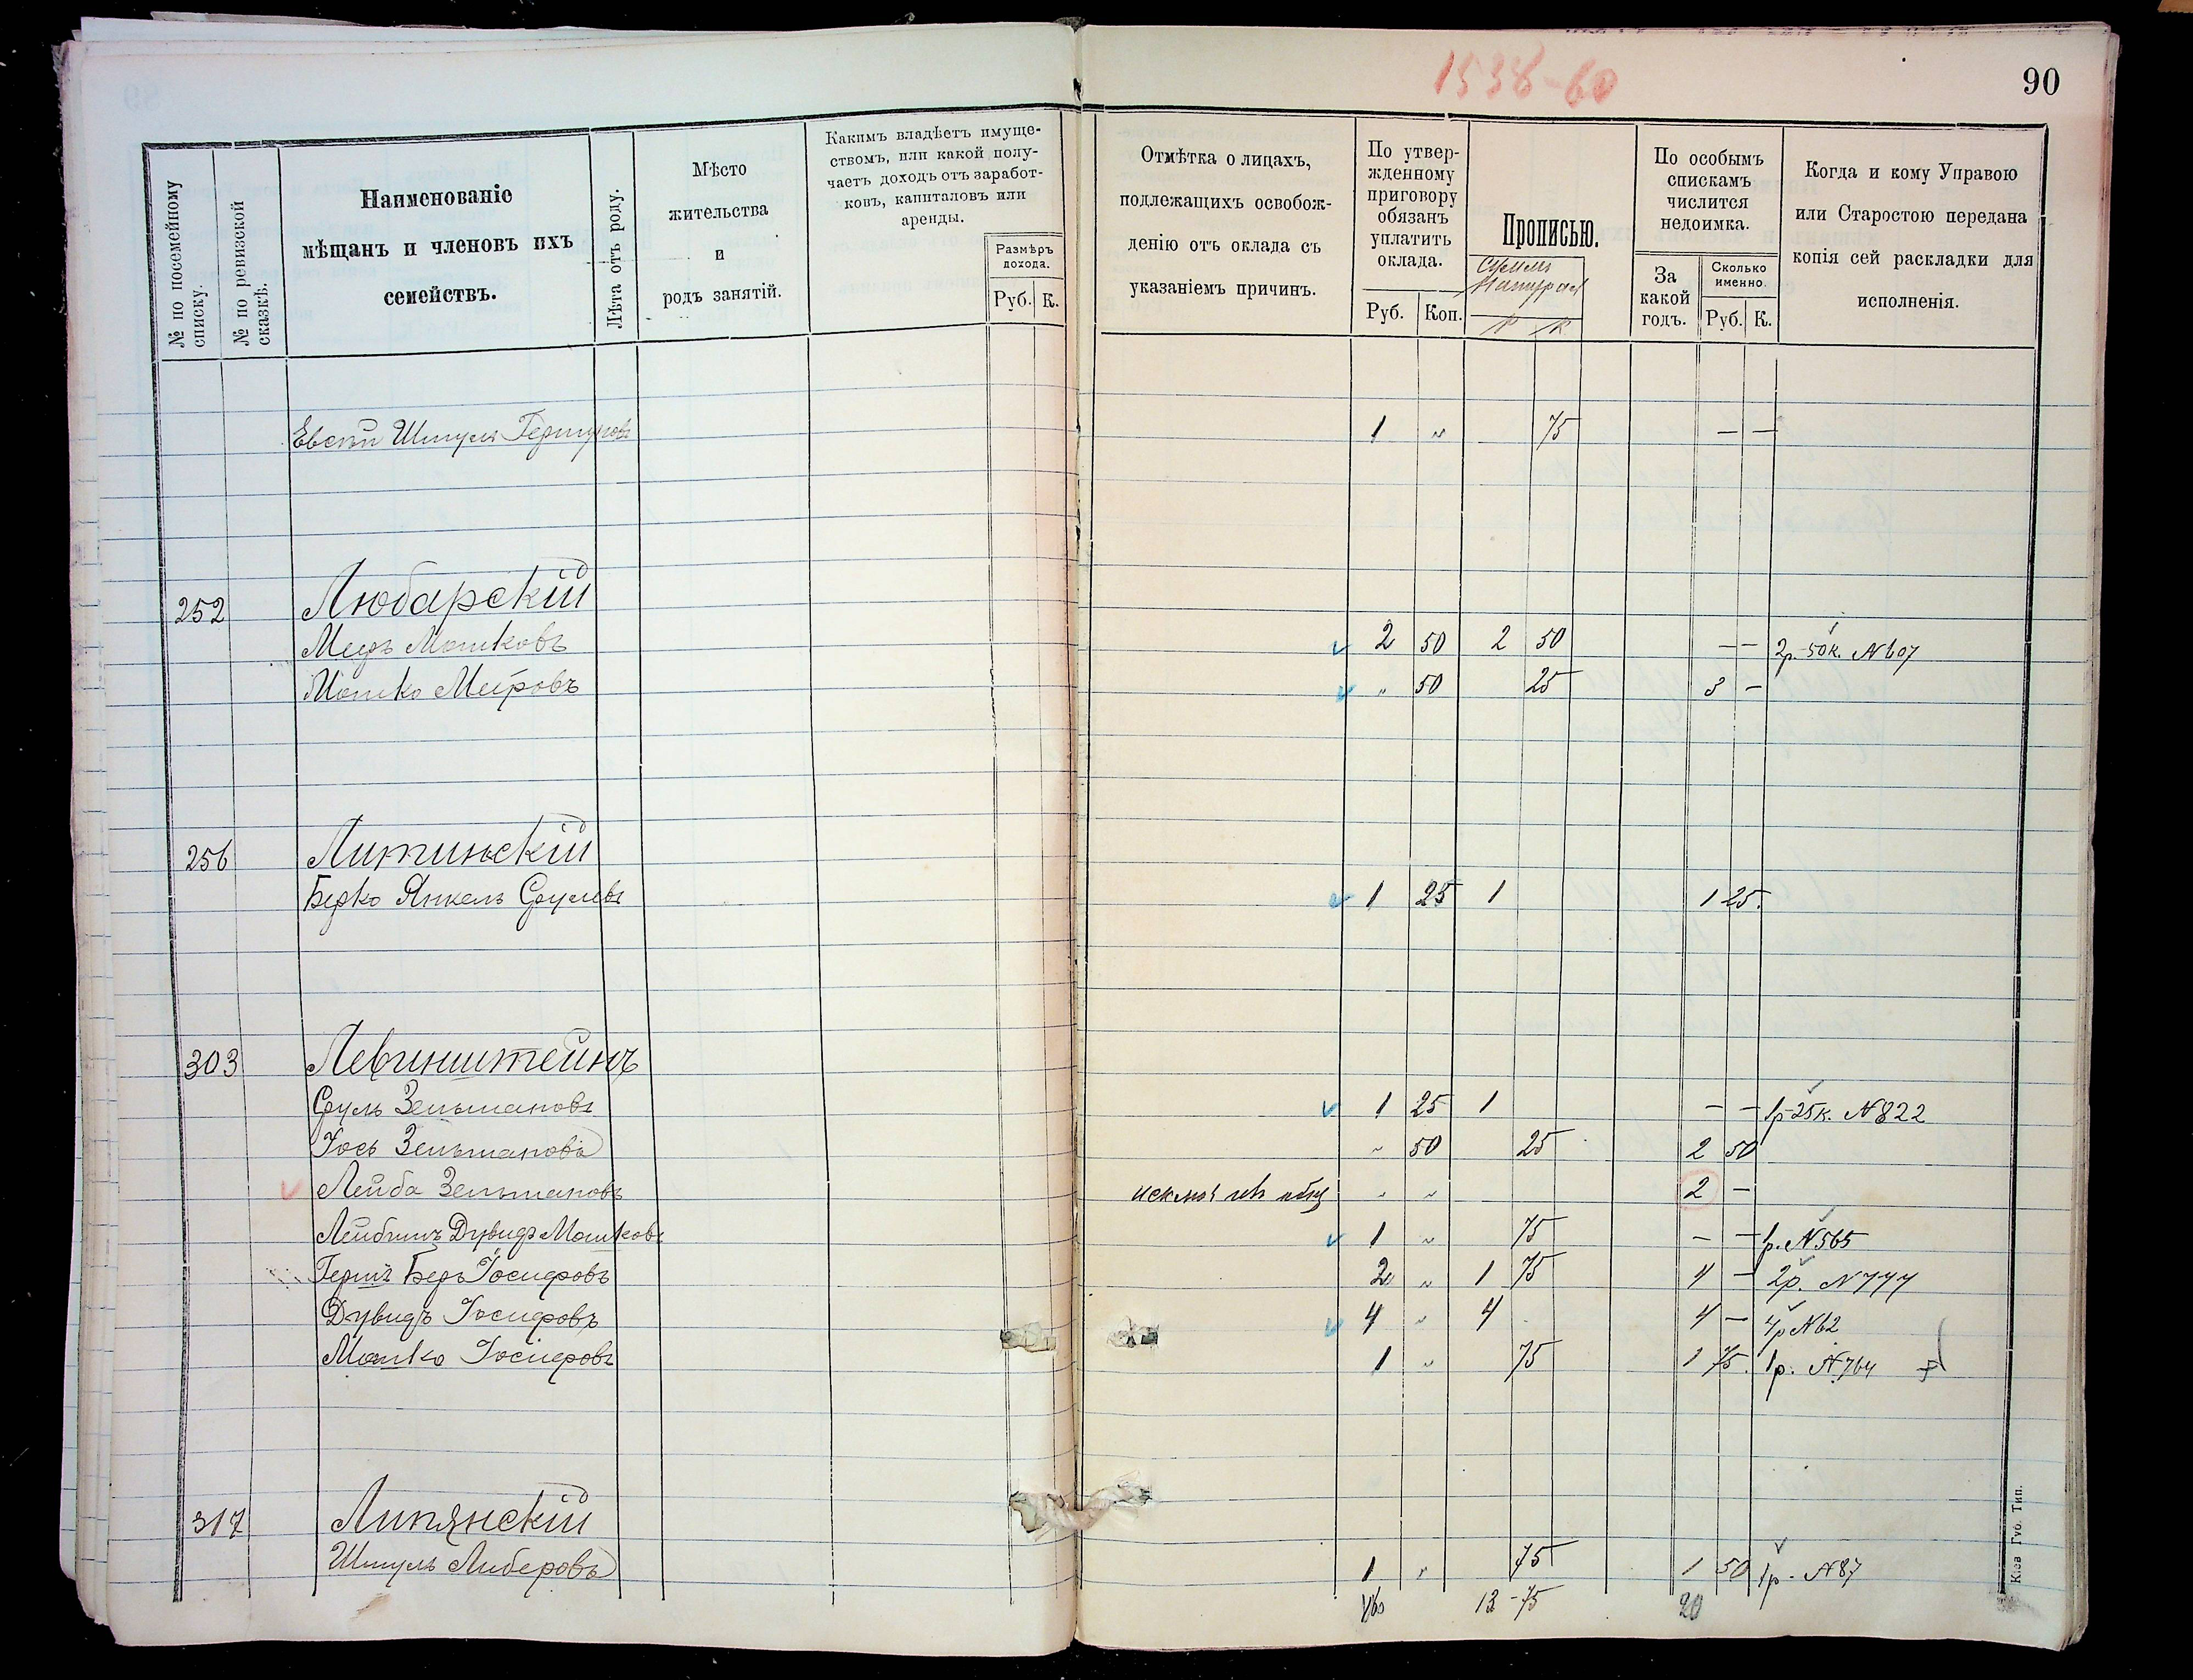 1538-60
90
№ по посемейному списку.
№ по ревизской сказкѣ.
Наименованіе
мѣщанъ и членовъ ихъ
семействъ.
Лѣта отъ роду.
Мѣсто
жительства
и
родъ занятій.
Какимъ владѣетъ имуще-
ствомъ, или какой полу-
чаетъ доходъ отъ заработ-
ковъ, капиталовъ или
аренды.
Размѣръ
дохода.
Руб. К.
Отмѣтка о лицахъ,
подлежащихъ освобож-
денію отъ оклада съ
указаніемъ причинъ.
По утвер-
жденному
приговору
обязанъ
уплатить
оклада.
Руб. Коп.
Прописью.
Р К
По особымъ
спискамъ
числится
недоимка.
За
какой
годъ.
Сколько
именно.
Руб. К.
Когда и кому Управою
или Старостою передана
копія сей раскладки для
исполненія.
Евсѣй Шмуль 1 " 75 — —
252 Любарскій
Мееръ Мошковъ 2 50 2 50 — — 2р.-50к. №607
Мошко Меировъ " 50 25 3 —
256 Литинскій
Берко Янкель Срулевъ 1 25 1 1 25.
303 Левинштейнъ
Сруль Зельмановъ 1 25 1 — — 1р-25к. №822
Іось Зельмановъ " 50 25 2 50
Лейба Зельмановъ исключ изъ общ " " 2 —
Лейбишъ Дувидъ Мошковъ 1 " 75 — — 1р. №565
Гершъ Беръ Іосифовъ 2 " 1 75 4 — 2р. №777
Дувидъ Іосифовъ 4 " 4 4 — 4р №62
Мошко Іосифовъ 1 " 75 1 75. 1р. №764
317 Липянскій
Шмуль Либеровъ 1 " 75 1 50 1р - №87
13-75 20
Кіев Губ. Тип.